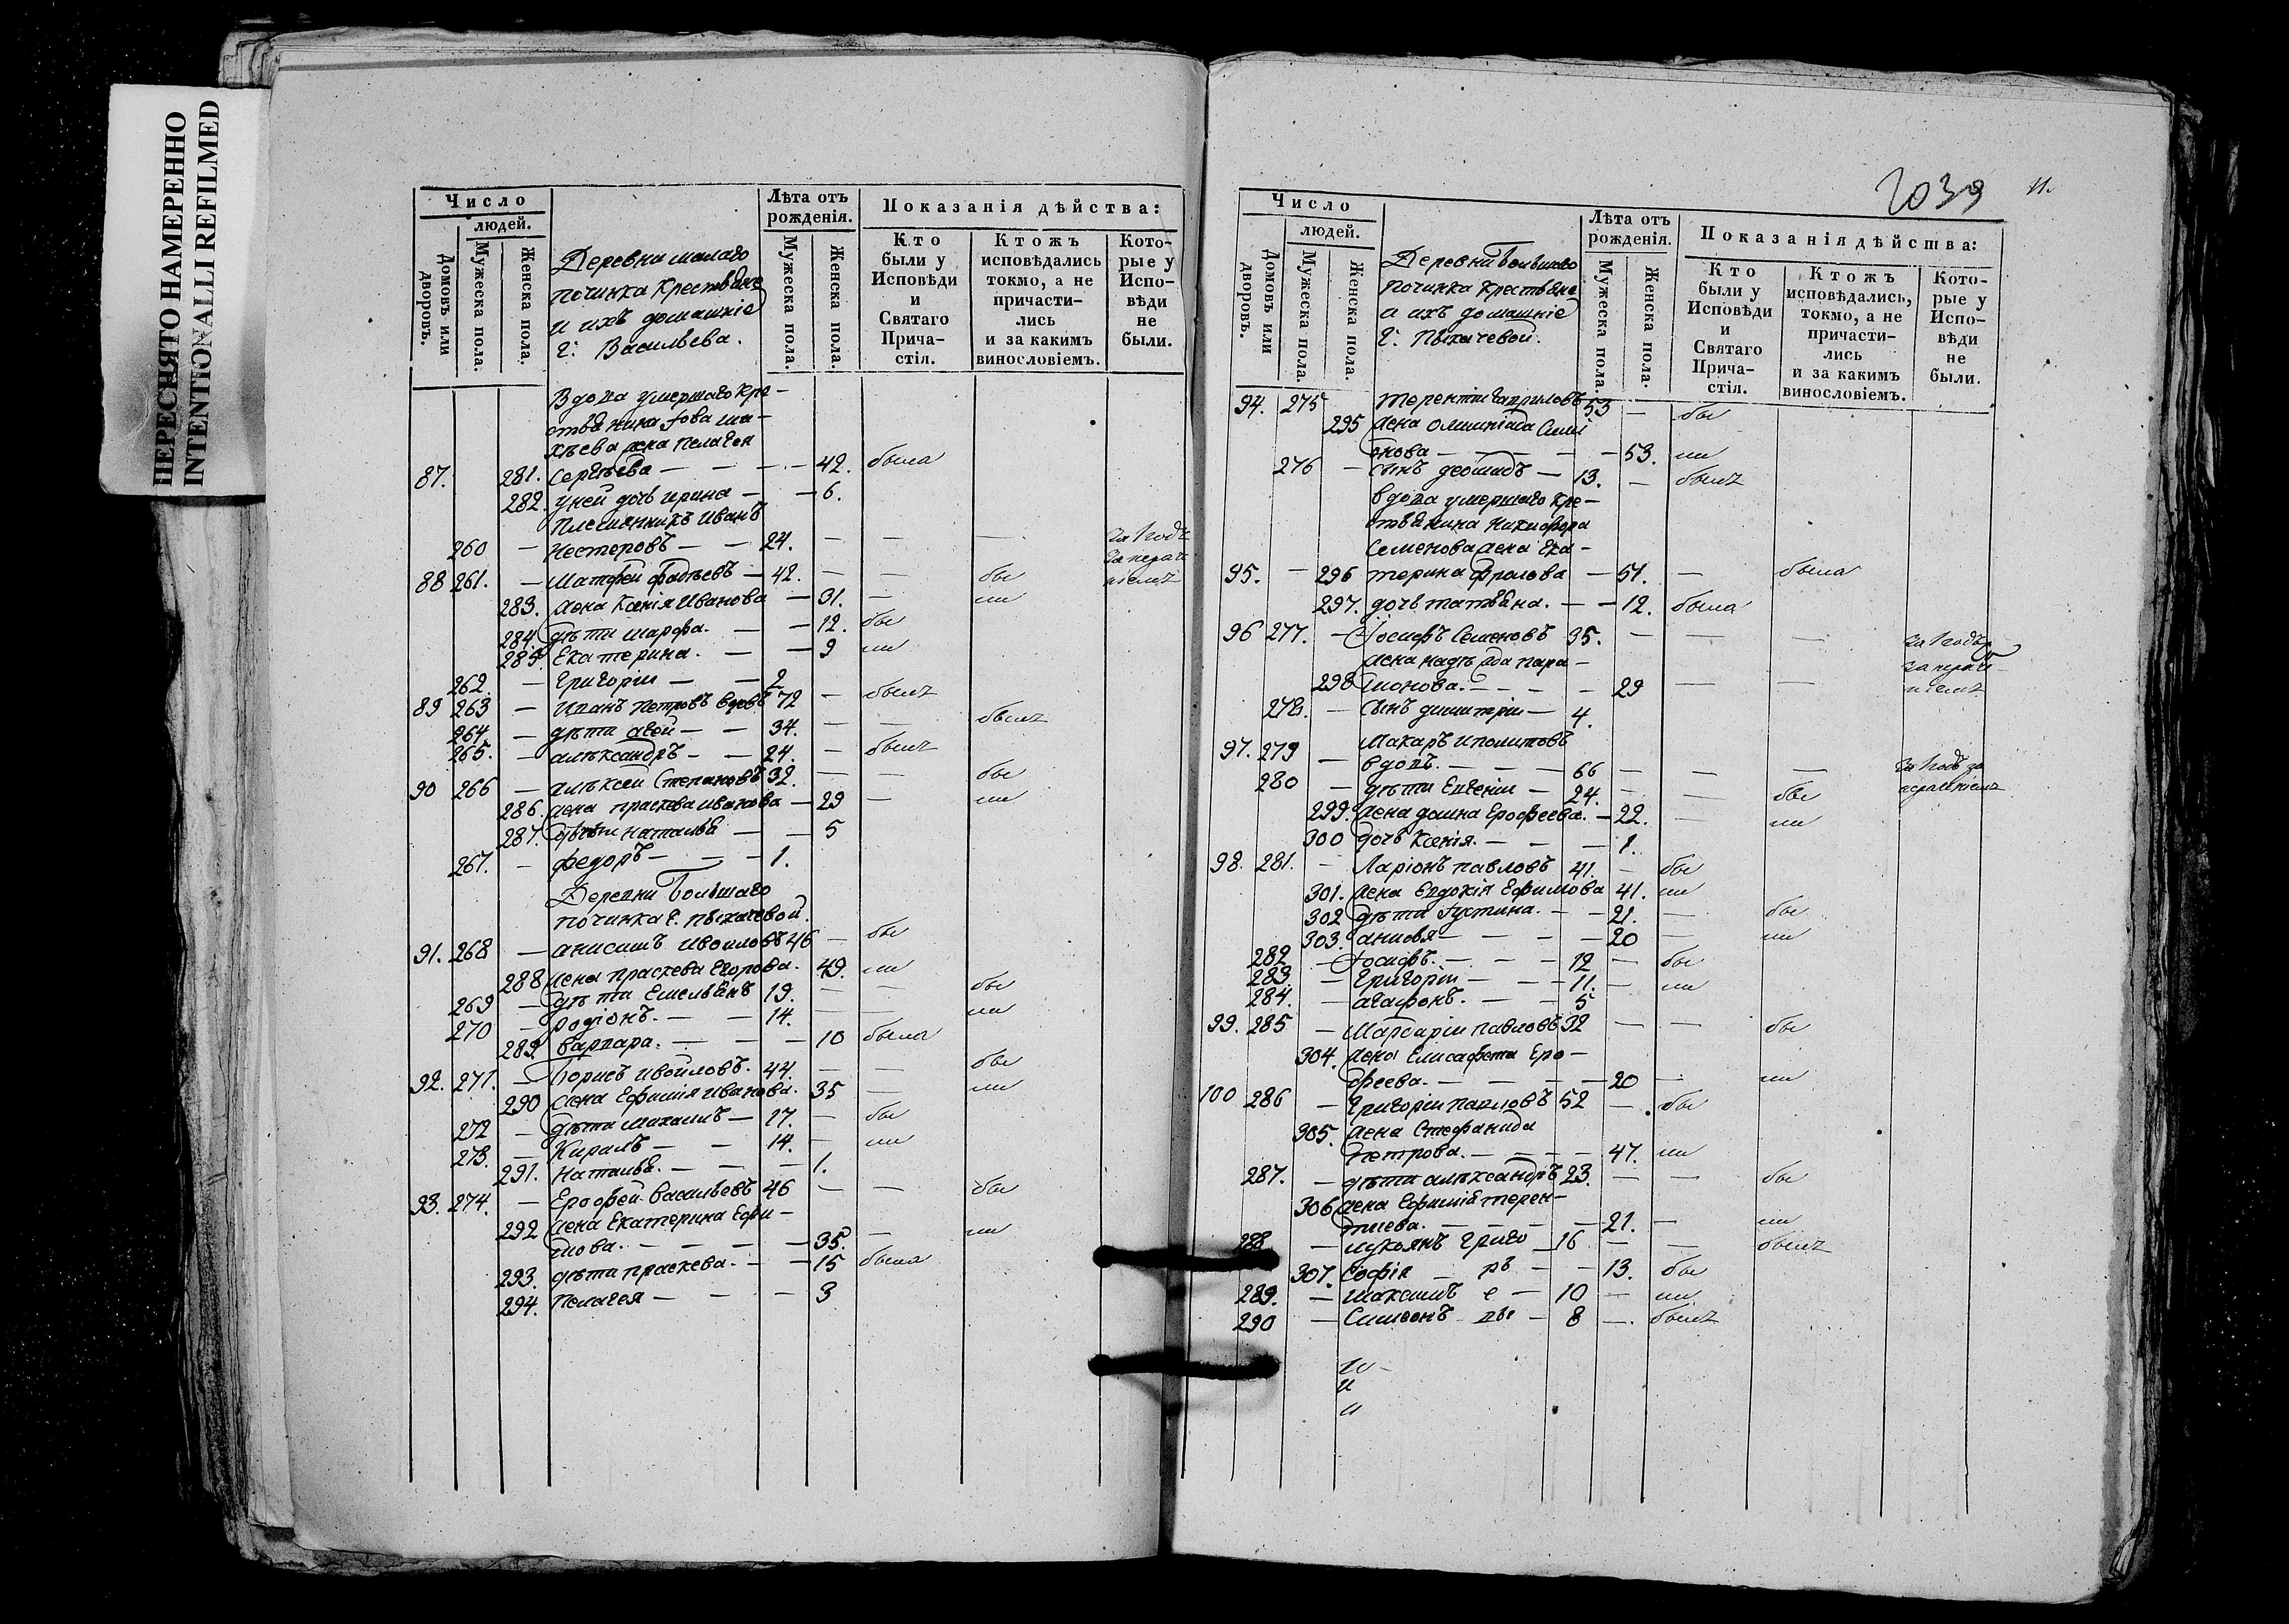 ПЕРЕСНЯТО НАМЕРЕННО
INTENTIONALLI REFILMED
Число
людей.
Домовъ или дворовъ.
Мужеска пола.
Женска пола.
Деревни малаго
починка крестьяне
и ихъ домашніе
г: Васильева.
Лѣта отъ рожденія.
Мужеска пола.
Женска пола.
Показанія дѣйства:
Кто были у Исповѣди и Святаго Прича- стія.
Ктожъ исповѣдались токмо, а не причасти- лись и за какимъ винословіемъ.
Кото- рые у Испо- вѣди не были.
Вдова умершаго кре-
стьянина Іова
жена Пелагея
87. 281. Сергѣева — — — 42. была
282. у ней дочь Ирина — — 6.
Племянникъ Иванъ
260 — Нестеровъ — — 24. — — —
88 261. — Матфей Фадѣевъ — 42. — — бы
283. жена Ксенія Иванова — 31. — ли
284. дѣти Марфа. — — 12. бы
285. Екатерина. — — 9 ли
262. — Григорій — — 2
89 263 — Иванъ Петровъ вдовъ 72 — былъ
264 — дѣти — — 34. — — былъ
265. — Александръ — — 24. — былъ
90 266 — Алексѣй Степановъ 32. — — бы
286. жена Праскева Иванова — 29 — ли
287. дѣти Наталья — — 5
267. — Федоръ — — — 1.
Деревни Большаго
починка г. Пыхачевой.
91. 268 — Анисимъ Ивойловъ 46 — бы
288 жена Праскева Егорова. 49. ли
269 — дѣти Емельянъ 19. — — бы
270 — Родіонъ. — — 14. — — ли
289. Варвара. — — — 10 была
92. 271. — Борисъ Ивойловъ. 44. — — бы
290 жена Ефимія Иванова. 35 — ли
272 — дѣти Михаилъ — 17. — бы
273. — Кирилъ — — 14. — ли
291. Наталья. — — — 1.
93. 274. — Ерофей Васильевъ 46 — — бы
292 жена Екатерина Ефи-
мова. — — — — 35. — ли
293. дѣти Праскева. — — 15 была
294. Пелагея — — — 3
2039
11.
Число
людей.
Домовъ или дворовъ.
Мужеска пола.
Женска пола.
Деревни Большаго
починка крестьяне
и ихъ домашніе
г: Пыхачевой.
Лѣта отъ рожденія.
Мужеска пола.
Женска пола.
Показанія дѣйства:
Кто были у Исповѣди и Святаго Прича- стія.
Ктожъ исповѣдались, токмо, а не причасти- лись и за какимъ винословіемъ.
Кото- рые у Испо- вѣди не были.
94. 275 Терентій Гавриловъ 53 — бы
295 жена Олимпіада Симі
онова — — — — 53. ли
276 — сынъ — 13. — былъ
вдова умершаго кре-
стьянина Никифора
Семенова жена Ека-
95. — 296 терина Фролова — 51. — была
297. дочь Татьяна. — — 12. была
96 277. — Іосифъ Семеновъ 35. — — —
жена Надежда Пара-
298 монова. — — — — 29 — —
278. — сынъ Димитрій — 4.
97. 279 Макаръ Иполитовъ
— вдовъ. — — — 66 — — —
280 — дѣти Евгеній — 24. — — бы
299. жена Домна Ерофеева. — 22. — ли
300 дочь Ксенія. — — — 1.
98. 281. — Ларіонъ Павловъ 41. — бы
301. жена Евдокія Ефимова 41. ли
302 дѣти Іустина. — — 21. — бы
303. Анисья — — — — 20 — ли
282 — Іосифъ. — — — 12 — бы
283. — Григорій — — — 11. — ли
284. — Агафонъ. — — — 5
99. 285 — Мардарій Павловъ 32 — — бы
304. жена Елисафета Еро-
феева. — — — — 20 — ли
100 286 — Григорій Павловъ 52 — бы
305. жена Стефанида
Петрова. — — — — 47. ли
287. — дѣти Александръ 23. — — бы
306 жена Ефимія Терен-
тиева. — — — — 21. — ли
288 — Лукоянъ Григо — 16 — — былъ
307. Софія — рь — — 13. бы
289. — Максимъ е — 10 — ли
290 — Симеонъ вы — 8 — былъ